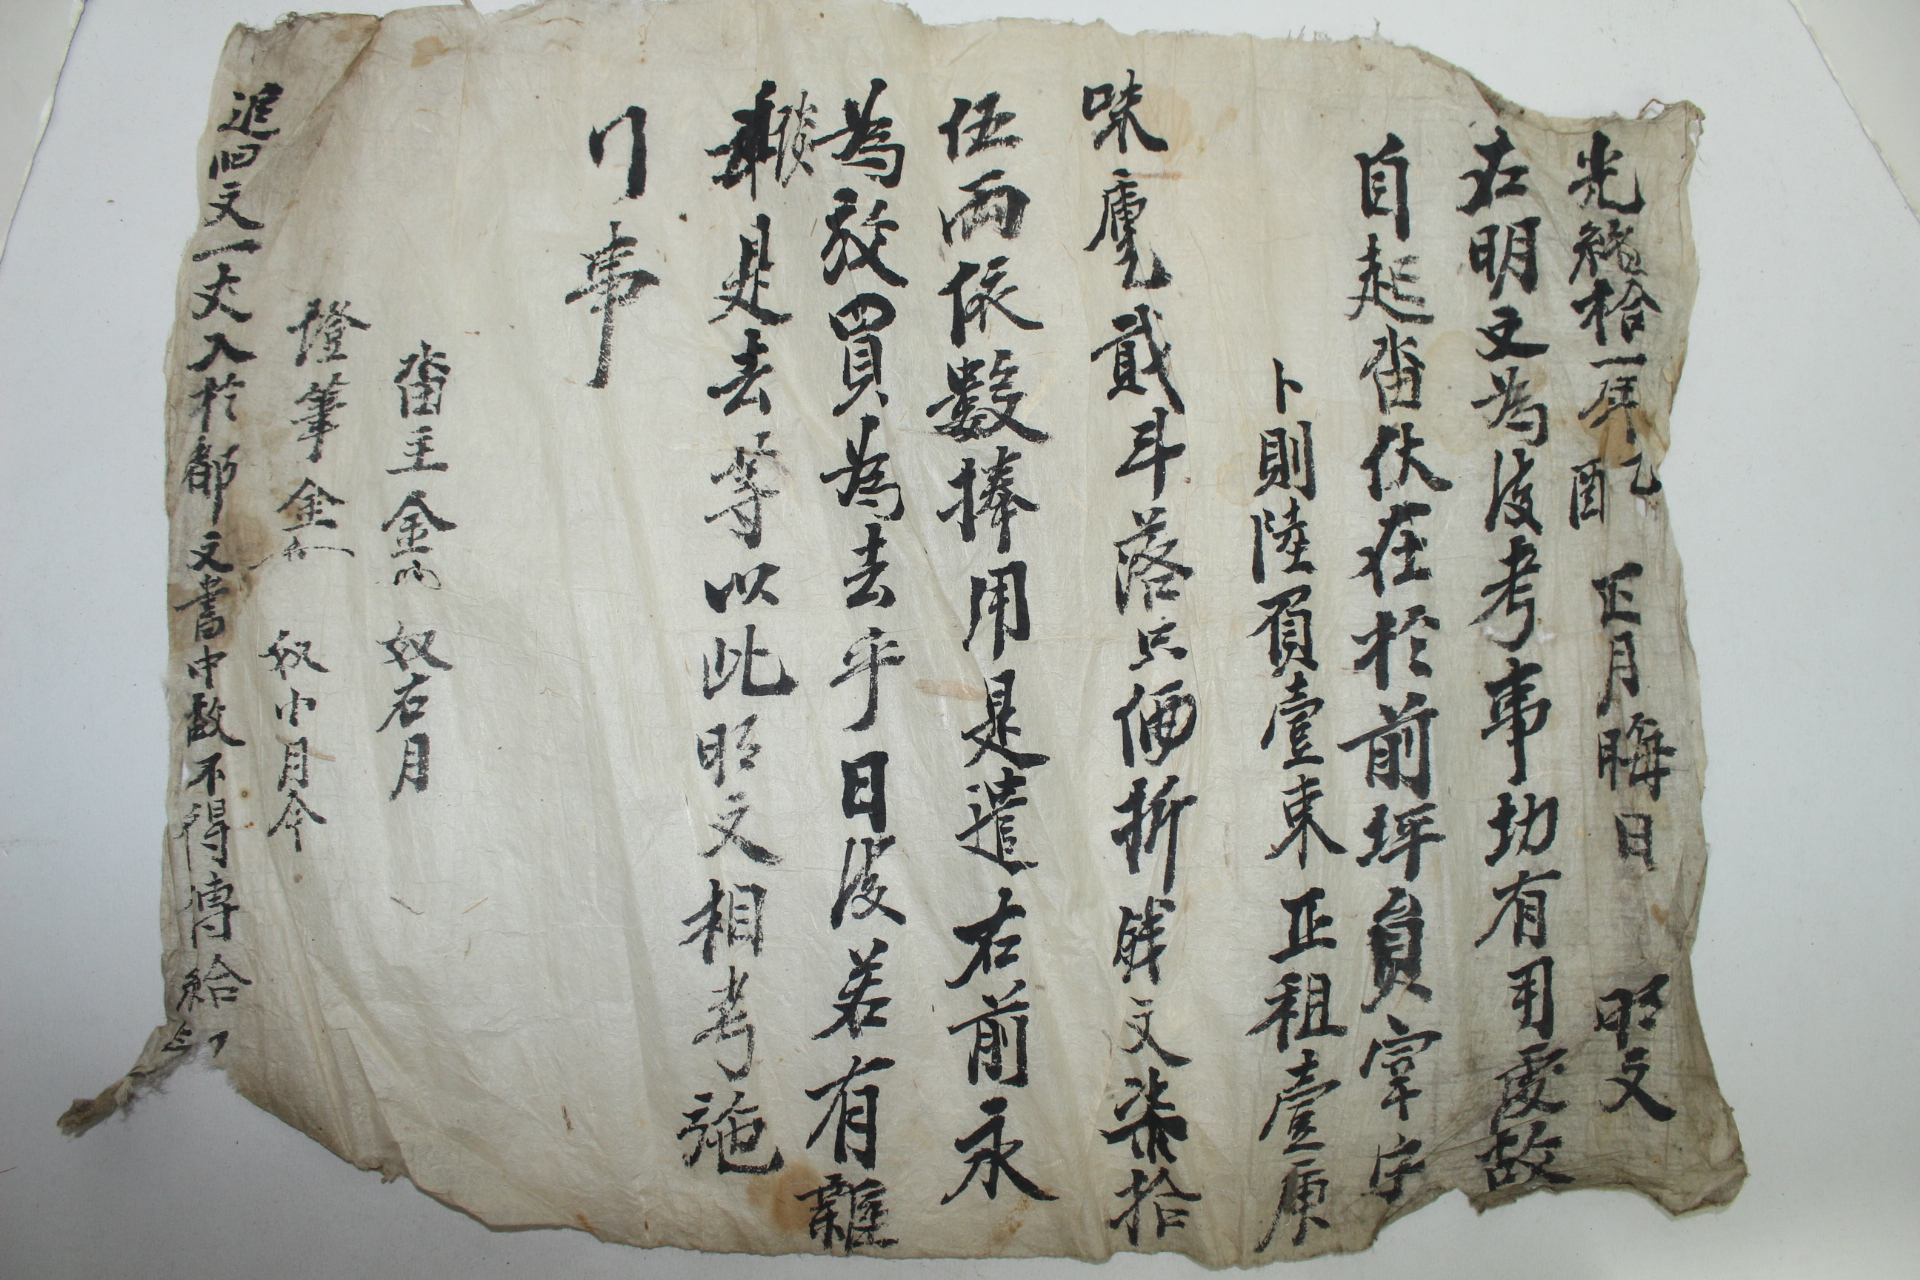 光緖拾一年乙酉 正月晦日 明文
右明文爲後考事切有用處故
自起畓伏在於前坪員字字
卜則陸負壹束正租壹
味 貳斗落只価折錢文柒拾
伍兩依數捧用是遣右前永
爲放買爲去乎日後若有雜
談是去等以此明文相考施
行事
畓主金 奴右月
證筆金 奴小月今
追旧文一丈入於都文書中故不得傳給